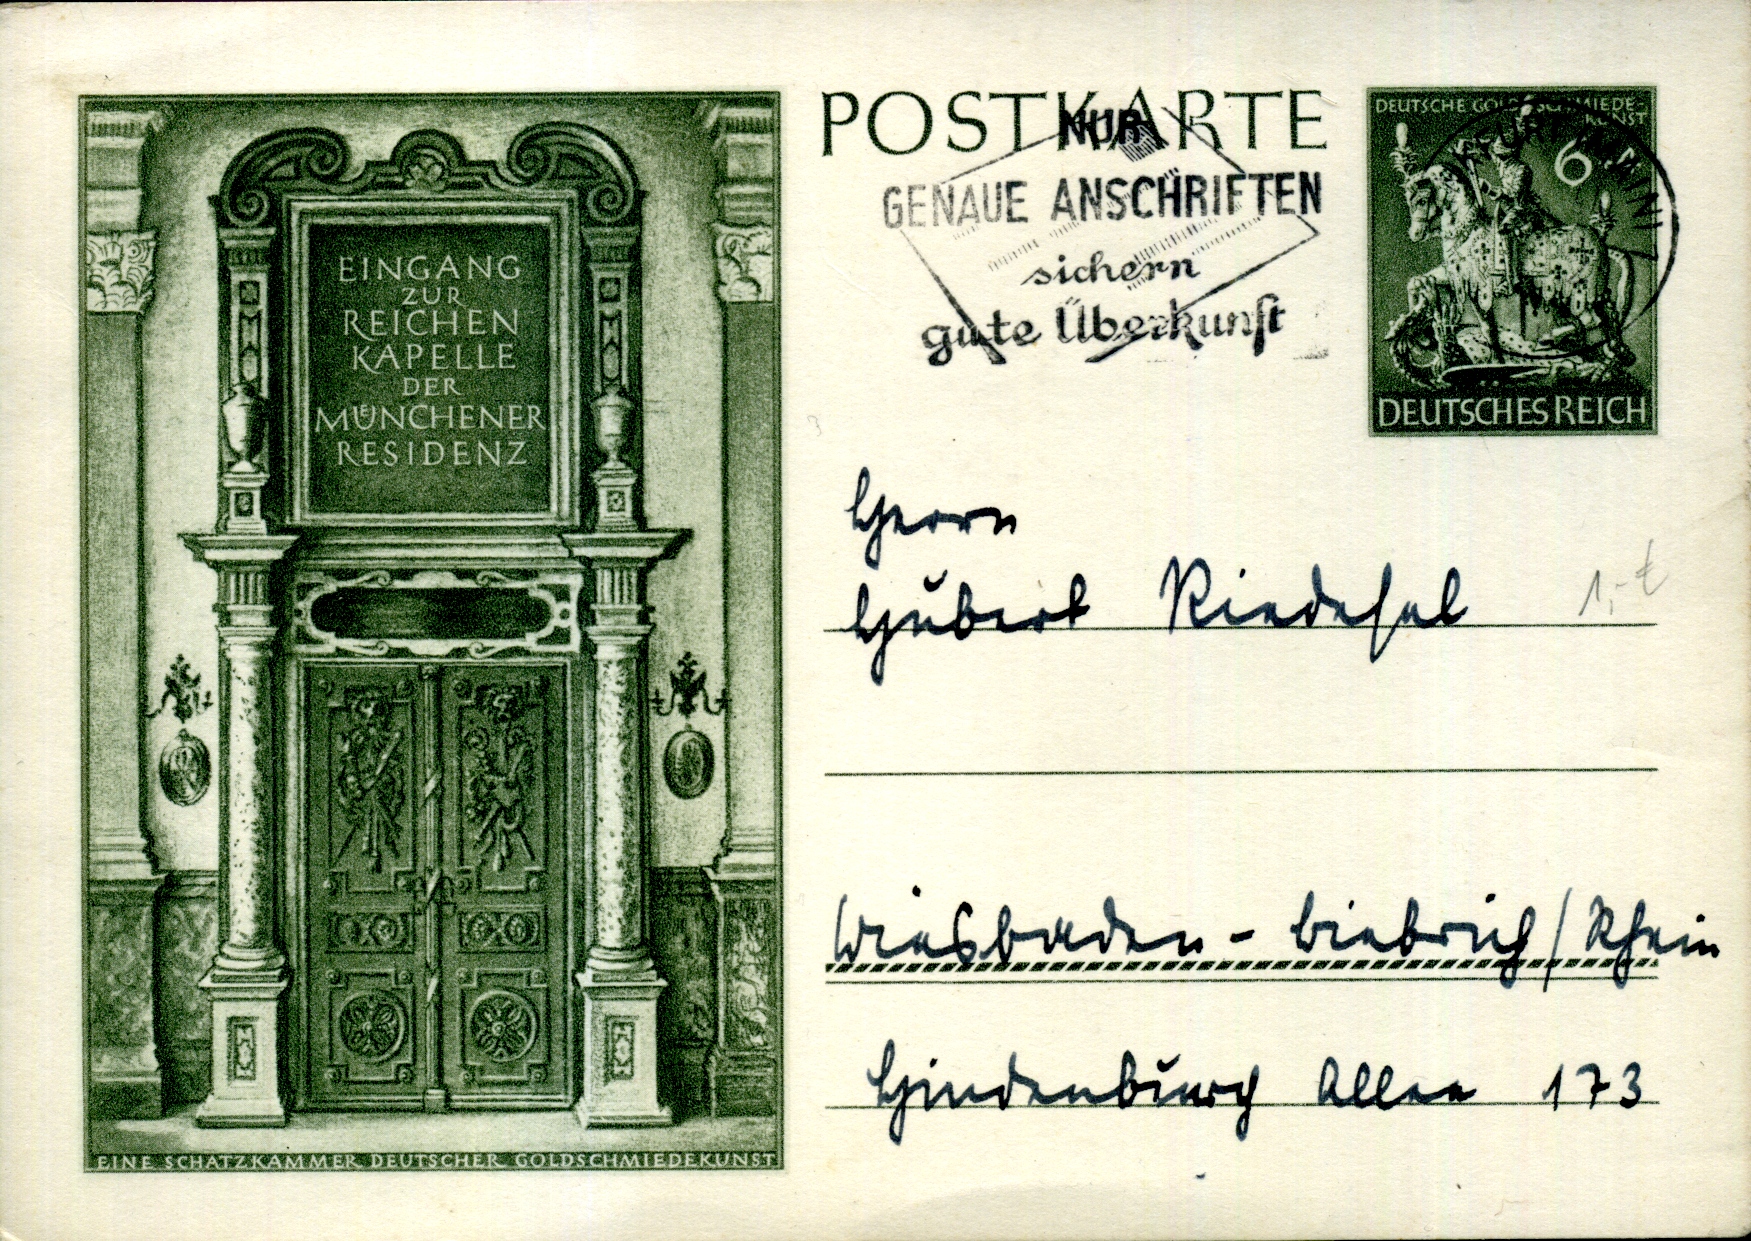 EINGANG
ZUR
REICHEN
KAPELLE
DER
MUENCHENER
RESIDENZ
EINE SCHATZKAMMER DEUTSCHER GOLDSCHMIEDEKUNST
POSTKARTE
NUR
GENAUE ANSCHRIFTEN
sichern
gute Überkunft
DEUTSCHE GOLDSCHMIEDE-
KUNST
6
DEUTSCHES REICH
Herrn
Hubert Riedesel
1,- €
Wiesbaden - Biebrich / Rhein
Hindenburg Allee 173